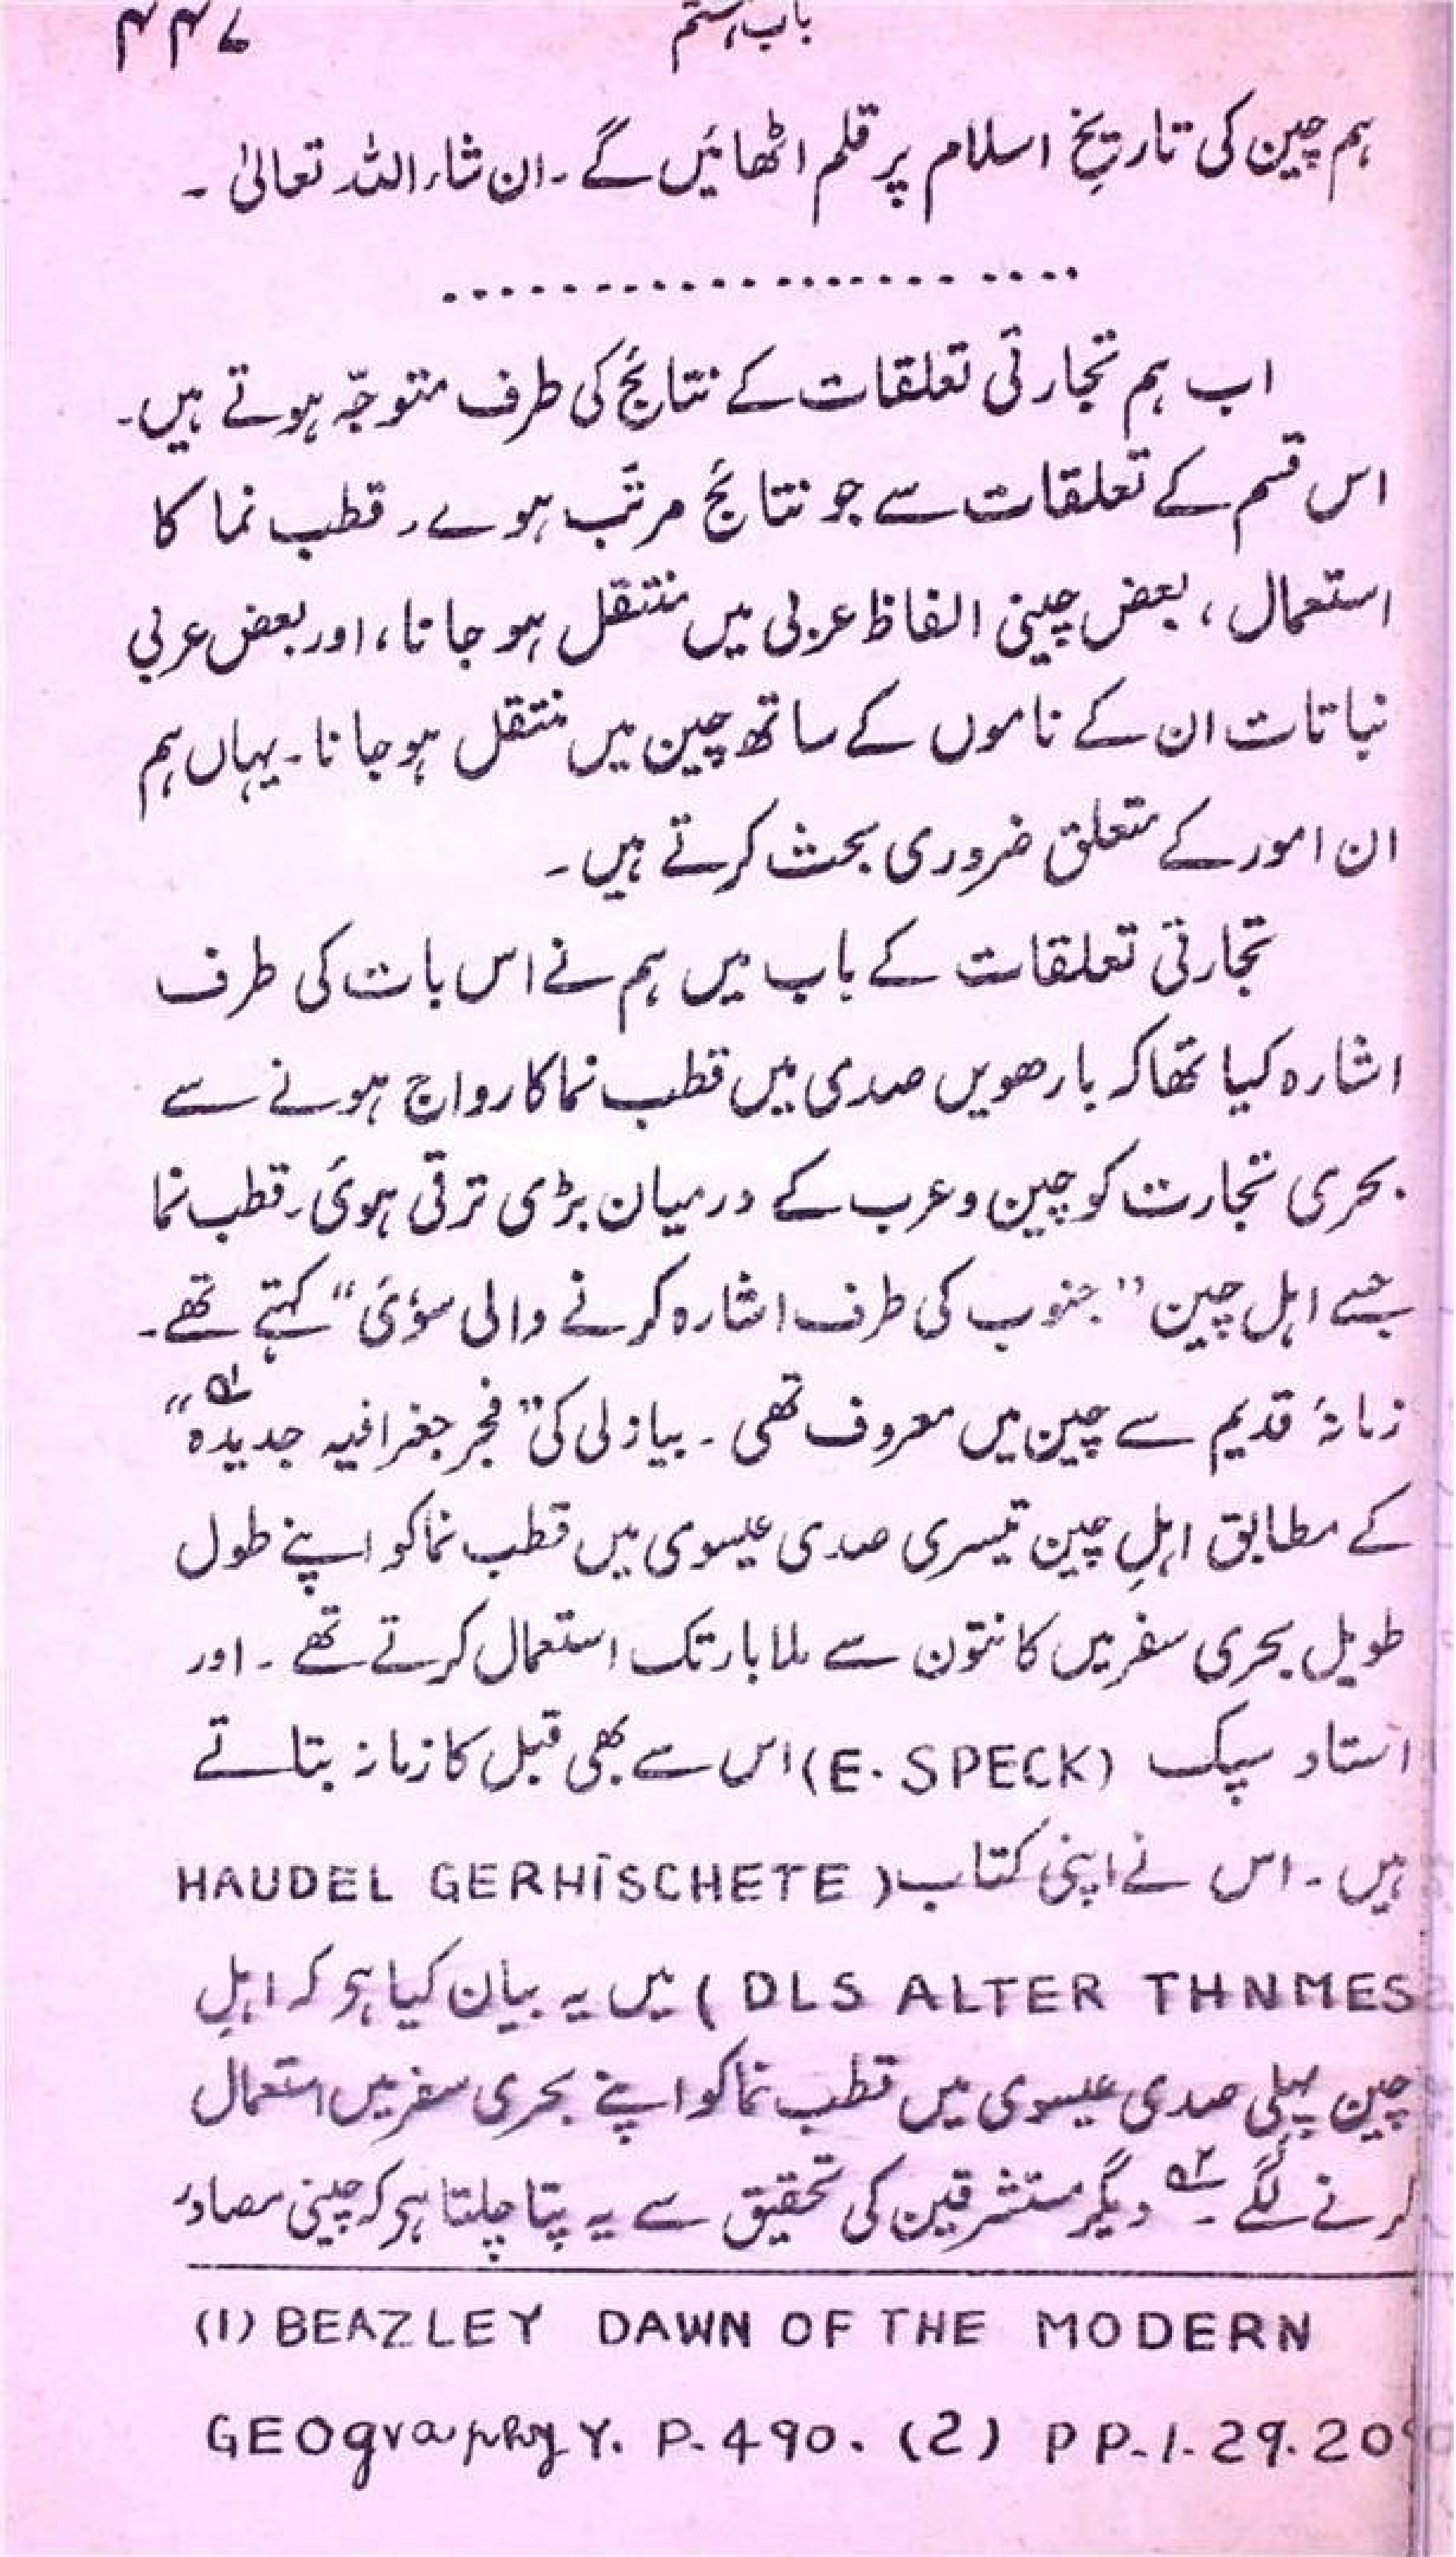 باب ہشتم ۴۴۷
ہم چین کی تاریخِ اسلام پر قلم اٹھائیں گے۔ ان شاء اللہ تعالیٰ۔
....................
اب ہم تجارتی تعلقات کے نتائج کی طرف متوجّہ ہوتے ہیں۔
اس قسم کے تعلقات سے جو نتائج مرتّب ہوے۔ قطب نما کا
استعمال، بعض چینی الفاظ عربی میں منتقل ہو جانا، اور بعض عربی
نباتات ان کے ناموں کے ساتھ چین میں منتقل ہو جانا۔ یہاں ہم
ان امور کے متعلق ضروری بحث کرتے ہیں۔
تجارتی تعلقات کے باب میں ہم نے اس بات کی طرف
اشارہ کیا تھا کہ بارھویں صدی میں قطب نما کا رواج ہونے سے
بحری تجارت کو چین و عرب کے درمیان بڑی ترقی ہوئی۔ قطب نما
جسے اہل چین "جنوب کی طرف اشارہ کرنے والی سوئی" کہتے تھے۔
زمانۂ قدیم سے چین میں معروف تھی۔ بیازلی کی "فجر جغرافیہ جدیدہ" ؎۱
کے مطابق اہلِ چین تیسری صدی عیسوی میں قطب نما کو اپنے طول
طویل بحری سفر میں کانتون سے ملابار تک استعمال کرتے تھے۔ اور
استاد سپک (E. SPECK) اس سے بھی قبل کا زمانہ بتاتے
ہیں۔ اس نے اپنی کتاب (HAUDEL GERHISCHETE
DLS ALTER THNMES) میں یہ بیان کیا ہو کہ اہلِ
چین پہلی صدی عیسوی میں قطب نما کو اپنے بحری سفر میں استعمال
کرنے لگے۔ ؎۲ دیگر مستشرقین کی تحقیق سے یہ پتا چلتا ہو کہ چینی مصادر
(1) BEAZLEY DAWN OF THE MODERN
GEOgraphy Y. P. 490. (2) PP. 1. 29. 209